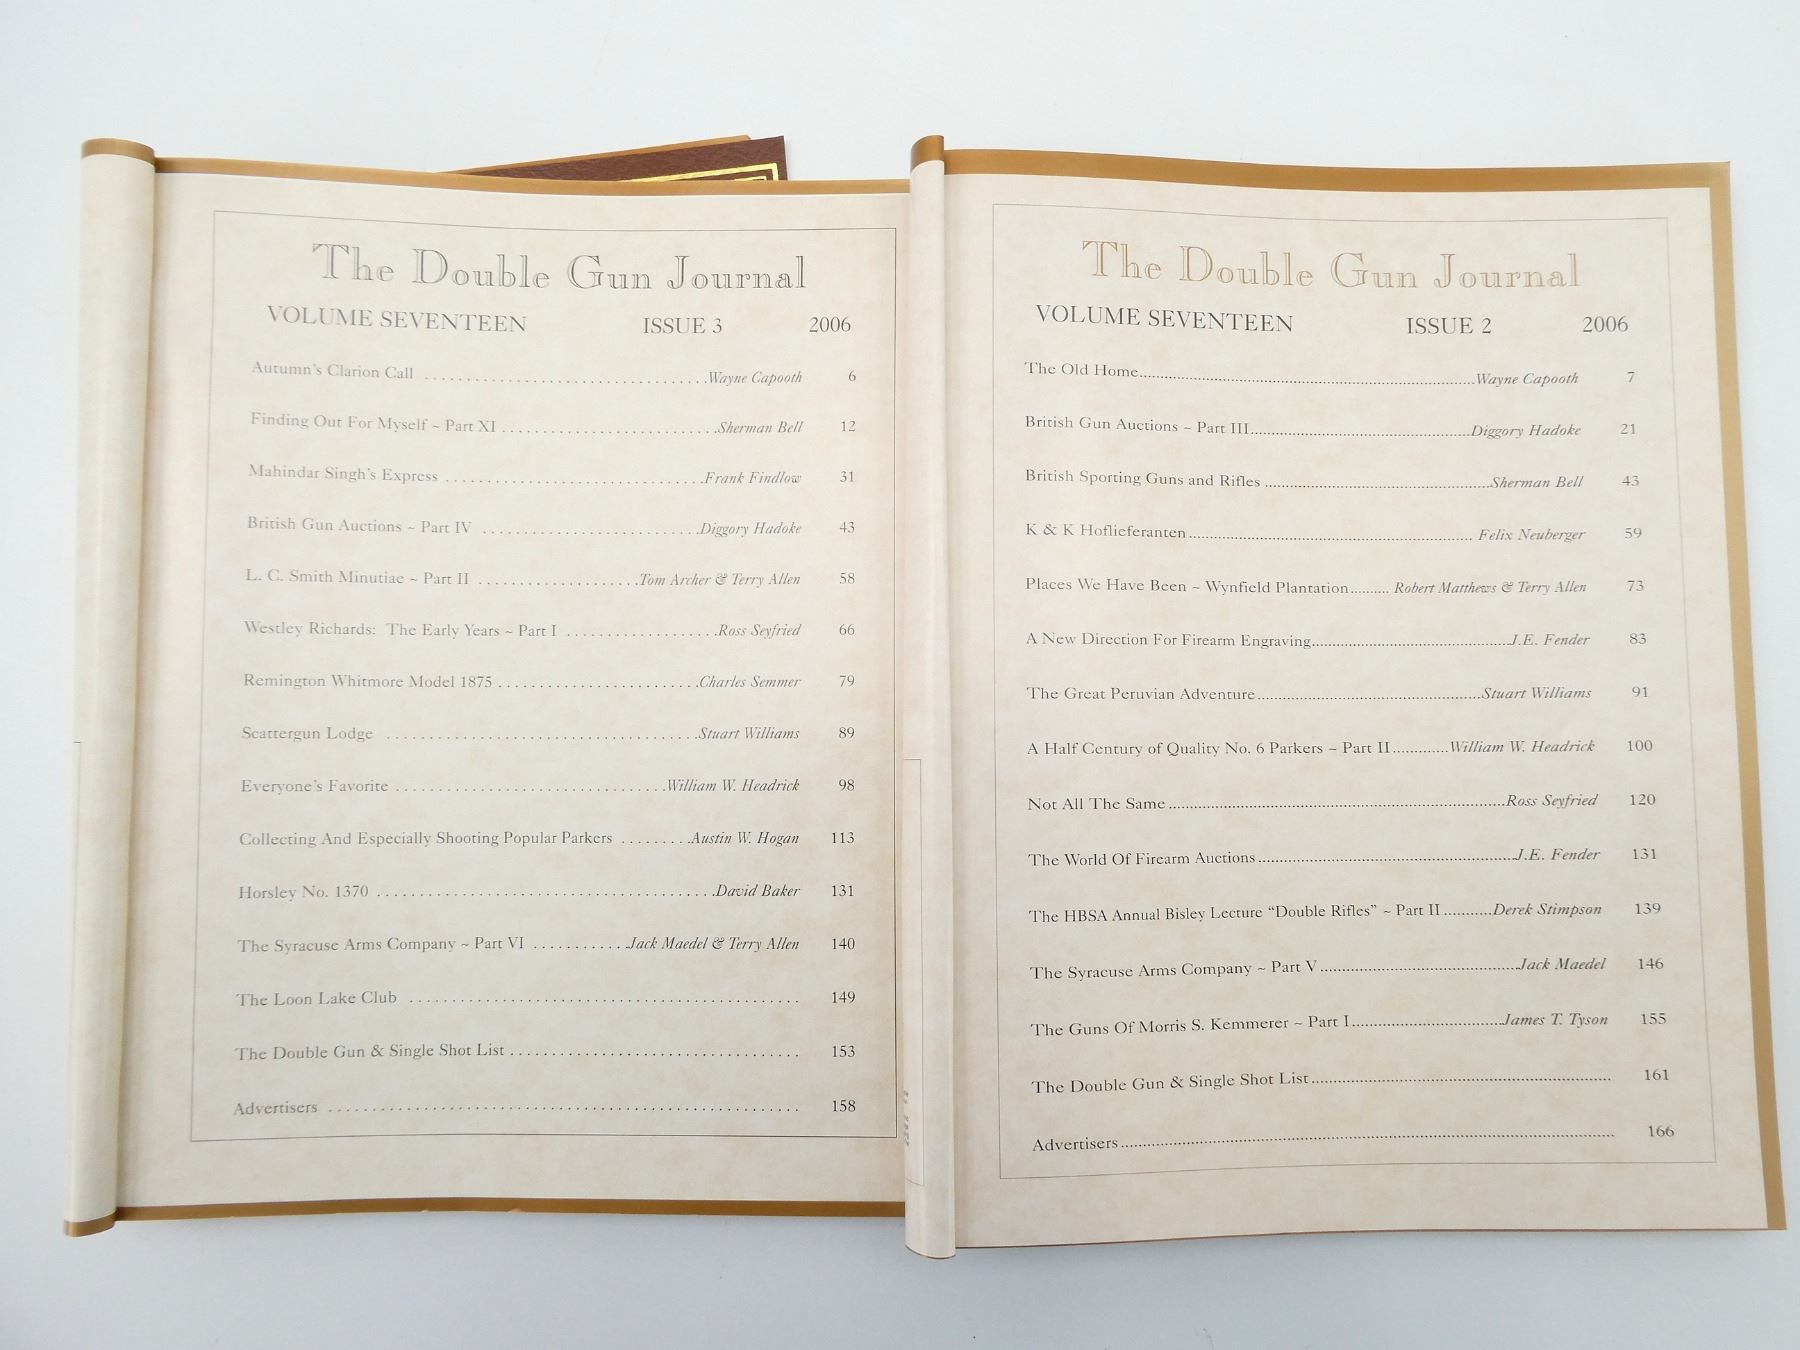 The Double Gun Journal
VOLUME SEVENTEEN ISSUE 3 2006
Autumn's Clarion Call ........ Wayne Capooth 6
Finding Out For Myself ~ Part XI ........ Sherman Bell 12
Mahindar Singh's Express ........ Frank Findlow 31
British Gun Auctions ~ Part IV ........ Diggory Hadoke 43
L. C. Smith Minutiae ~ Part II ........ Tom Archer & Terry Allen 58
Westley Richards: The Early Years ~ Part I ........ Ross Seyfried 66
Remington Whitmore Model 1875 ........ Charles Semmer 79
Scattergun Lodge ........ Stuart Williams 89
Everyone's Favorite ........ William W. Headrick 98
Collecting And Especially Shooting Popular Parkers ........ Austin W. Hogan 113
Horsley No. 1370 ........ David Baker 131
The Syracuse Arms Company ~ Part VI ........ Jack Maedel & Terry Allen 140
The Loon Lake Club ........ 149
The Double Gun & Single Shot List ........ 153
Advertisers ........ 158
The Double Gun Journal
VOLUME SEVENTEEN ISSUE 2 2006
The Old Home ........ Wayne Capooth 7
British Gun Auctions ~ Part III ........ Diggory Hadoke 21
British Sporting Guns and Rifles ........ Sherman Bell 43
K & K Hoflieferanten ........ Felix Neuberger 59
Places We Have Been ~ Wynfield Plantation ........ Robert Matthews & Terry Allen 73
A New Direction For Firearm Engraving ........ J.E. Fender 83
The Great Peruvian Adventure ........ Stuart Williams 91
A Half Century of Quality No. 6 Parkers ~ Part II ........ William W. Headrick 100
Not All The Same ........ Ross Seyfried 120
The World Of Firearm Auctions ........ J.E. Fender 131
The HBSA Annual Bisley Lecture "Double Rifles" ~ Part II ........ Derek Stimpson 139
The Syracuse Arms Company ~ Part V ........ Jack Maedel 146
The Guns Of Morris S. Kemmerer ~ Part I ........ James T. Tyson 155
The Double Gun & Single Shot List ........ 161
Advertisers ........ 166